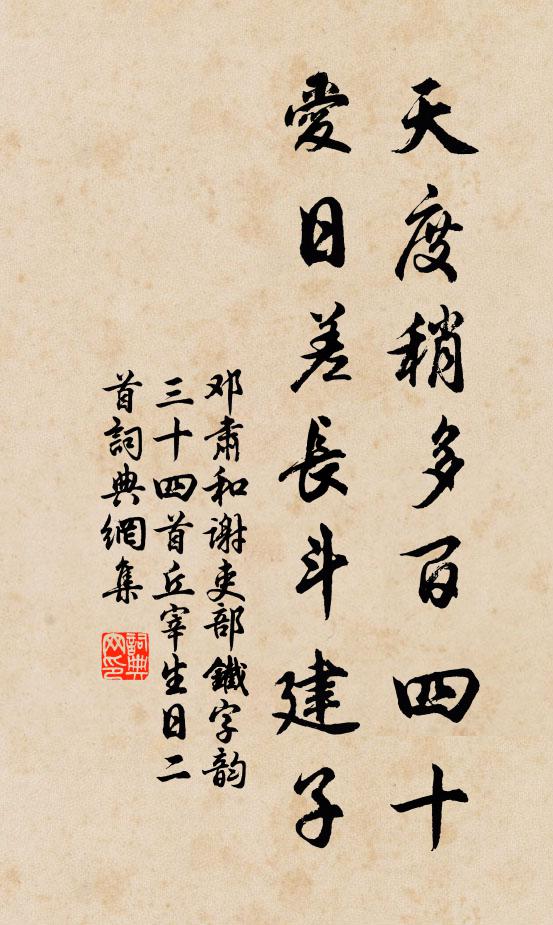 天度稍多百四十
愛日差長斗建子
邓肅和谢吏部鐵字韵
三十四首丘宰生日二
首詞典網集
詞典網印